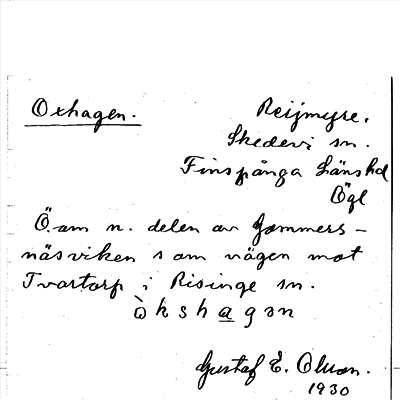 Oxhagen.
Reijmyre.
Skedevi sn.
Finspånga Länshd
Ögl
Ö. om n. delen av Gommers-
näsviken s om vägen mot
Tvartorp i Risinge sn.
òkshagən
Gustaf E. Olsson.
1930